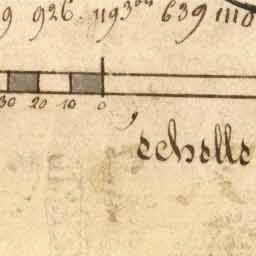 9 926. 1193 639 1110
30 20 10 0
échelle